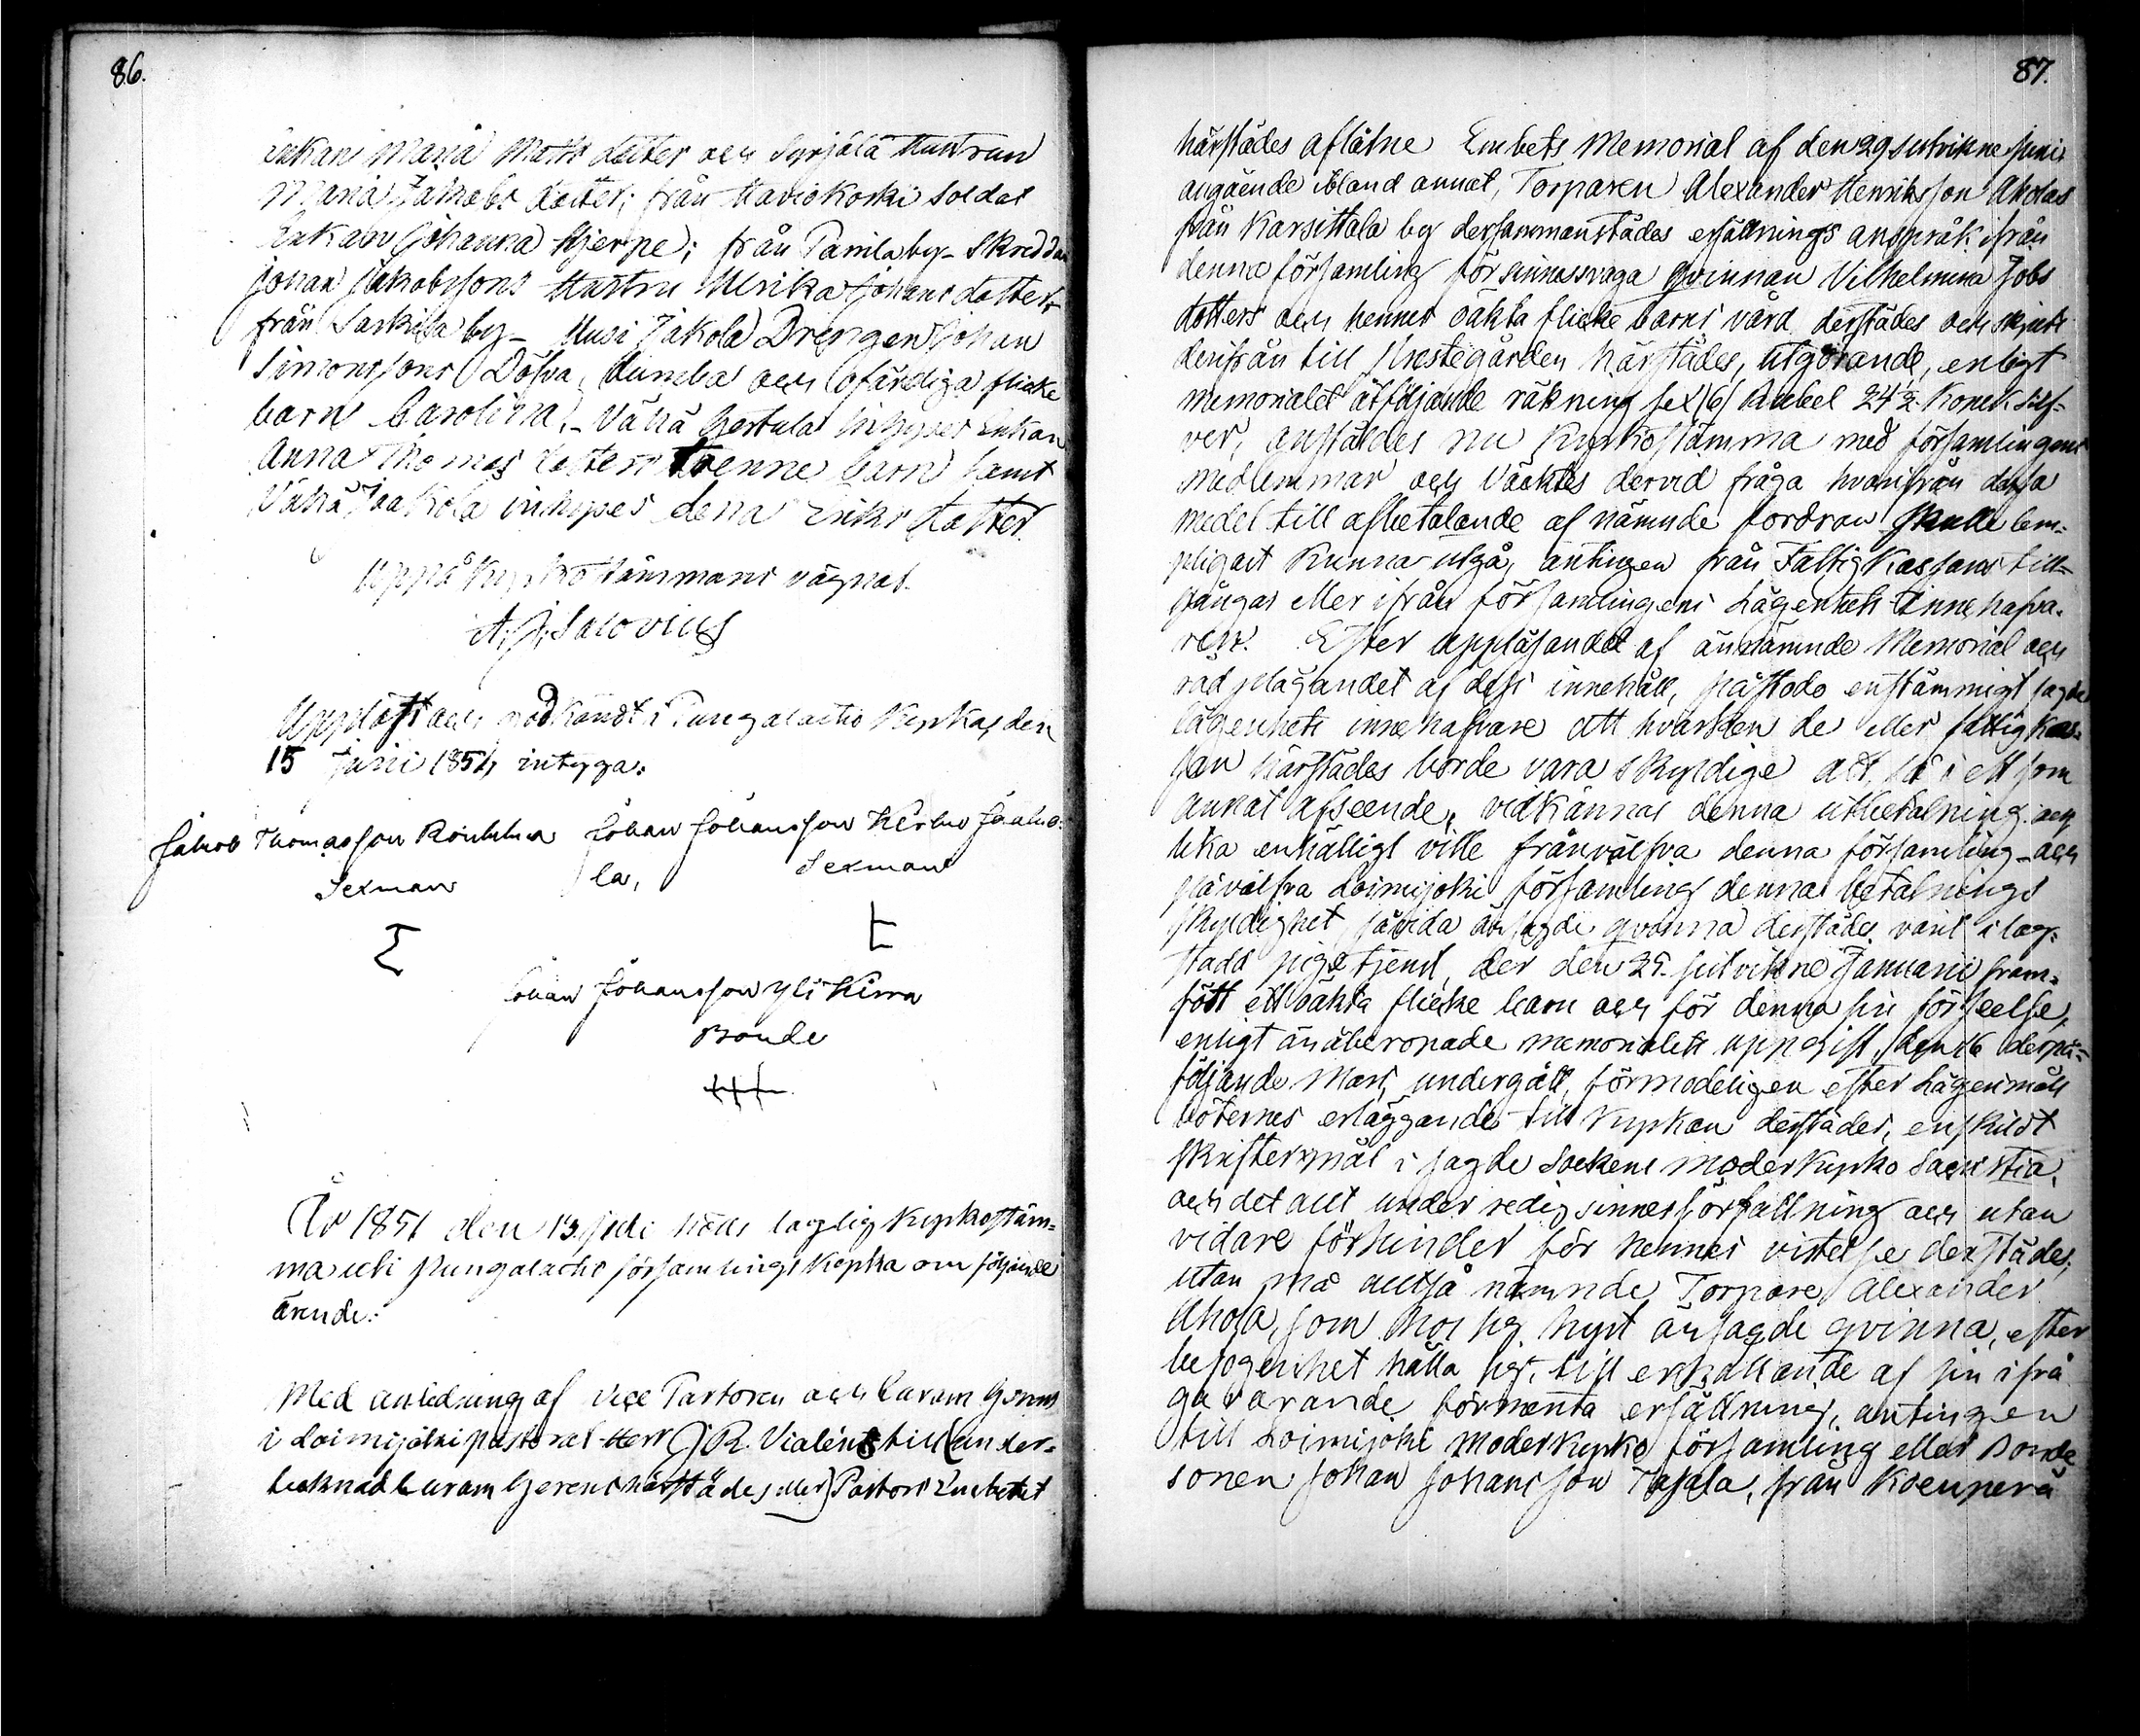 86.
Enkan Maria Matts dotter och Syrjälä Hustrun
Maria Jakobs dotter; från Haviokoski Soldat
Enkan Johanna Hjerpe; från Panila by – Skreddar
Johan Jakobssons Hustru Ulrika Johans dotter
från Sarkila by – Uusi Jakola Drengen Johan
Simonssons Döfva, dumba och ofärdiga flicke
barn Carolina, – Vähä Hertula Inhyses Enkan
Anna Thomas dotters trenne barn samt
Vähä Jaakola inhyses Lena Eriks dotter.
Uppå Kyrkostämmans vägnar
A. J. Salovius
Uppläst och godkändt i Pungalaitio Kyrka, den
15 Juni 1851, intyga:
Jakob Thomasson Johan Johansson Jaako-
Sexman la, Sexman
Johan Johansson Yli Kirra
Bonde
År 1851 den 13 Juli hölls laglig Kyrkostäm-
ma uti Pungalaitio församlings Kyrka om följande
ärende:
Med anledning af Vice Pastoren och Curam Gerens
i Loimijoki pastorat Herr J. R. Vialens till (under-
tecknad Curam Gerens härstädes eller) Pastors Embetet
87.
härstädes aflåtne Embets Memorial af den 29 sistvikne Juni
angående ibland annat, Torparen Alexander Henriksson Aholas
från Karsittala by dersammanstädes ersättnings anspråk ifrån
denna församling för sinnessvaga qvinnan Vilhelmina Jobs
dotters och hennes oäkta flicke barns vård derstädes och skjuts
derifrån till Prestegården härstädes, utgörande, enligt
memorialet åtföljande räkning sex (6) Rubel 24 1/2 Kopek Silf-
ver, anställdes nu Kyrkostämma med församlingens
medlemmar och väcktes dervid fråga hvarifrån dessa
medel till afbetalande af nämnde fordran skulle läm-
pligast kunna utgå, antingen från Fattig Kassans till-
gångar eller ifrån församlingens Lägenhets Innehafva-
rer. Efter uppläsandet af ännämnde Memorial och
rådplägandet af dess innehåll, påstodo enstämmigt sagde
lägenhets innehafvare att hvarken de eller fattigkas-
san härstädes borde vara skyldige att, så i ett som
annat afseende, vidkännas denna utbetalning och
lika enhälligt ville frånvälfva denna församling och
påvälfva Loimijoki församling denna betalnings
skyldighet, såvida ansagde qvinna derstädes varit i lag-
stadd pige tjenst, der den 25 sistvikne Januarii fram-
född ett oäkta flicke barn och för denna sin förseelse,
enligt änåberopade memorialets uppgift, den 16 derpå-
följande Mars, undergått, förmodeligen efter Lägersmåls
böternes erläggande till Kyrkan derstädes, enskildt
skriftermål i sagde Sockens moderkyrko Sacristia,
och det allt under redig sinnesförfattning och utan
vidare förhinder för hennes vistelse derstädes;
utan må alltså nämnde Torpare Alexander
Ahola, som hos sig hyst änsagde qvinna, efter
befogenhet hålla sig, till erhållande af sin ifrå-
gavarande förmenta ersättning, antingen
till Loimijoki moderkyrko församling eller Bonde
sonen Johan Johansson Tapala, från Koenperä